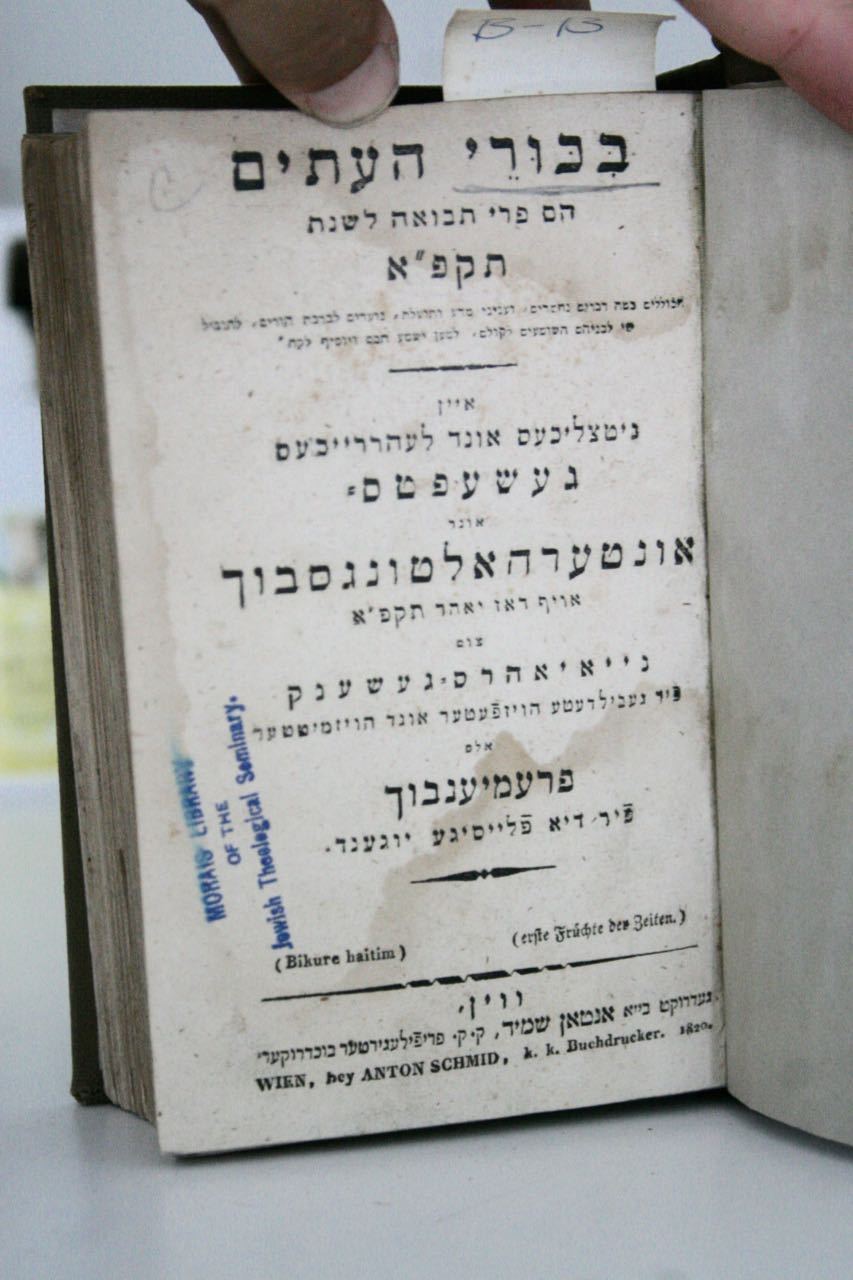 בִּכּוּרֵי הָעִתִּים
הם פרי תבואה לשנת
תקפ״א
איין
ניטצליכעס אונד לעהררייכעס
געשעפטס-
אונד
אונטערהאלטונגסבוך
אויף דאז יאהר תקפ״א
צום
נייאיאהרס-געשענק
פֿיר געבילדעטע הויזפֿעטער אונד הויזמיטטער
אלס
פרעמיענבוך
פֿיר דיא פֿלייסיגע יוגענד.
(Bikure haitim)
(erste Früchte der Zeiten.)
וויין,
געדרוקט בייא אנטאן שמיד, ק.ק. פריפֿילעגירטער בוכדרוקער.
WIEN, bey ANTON SCHMID, k. k. Buchdrucker. 1820.
MORAIS LIBRARY
OF THE
Jewish Theological Seminary.